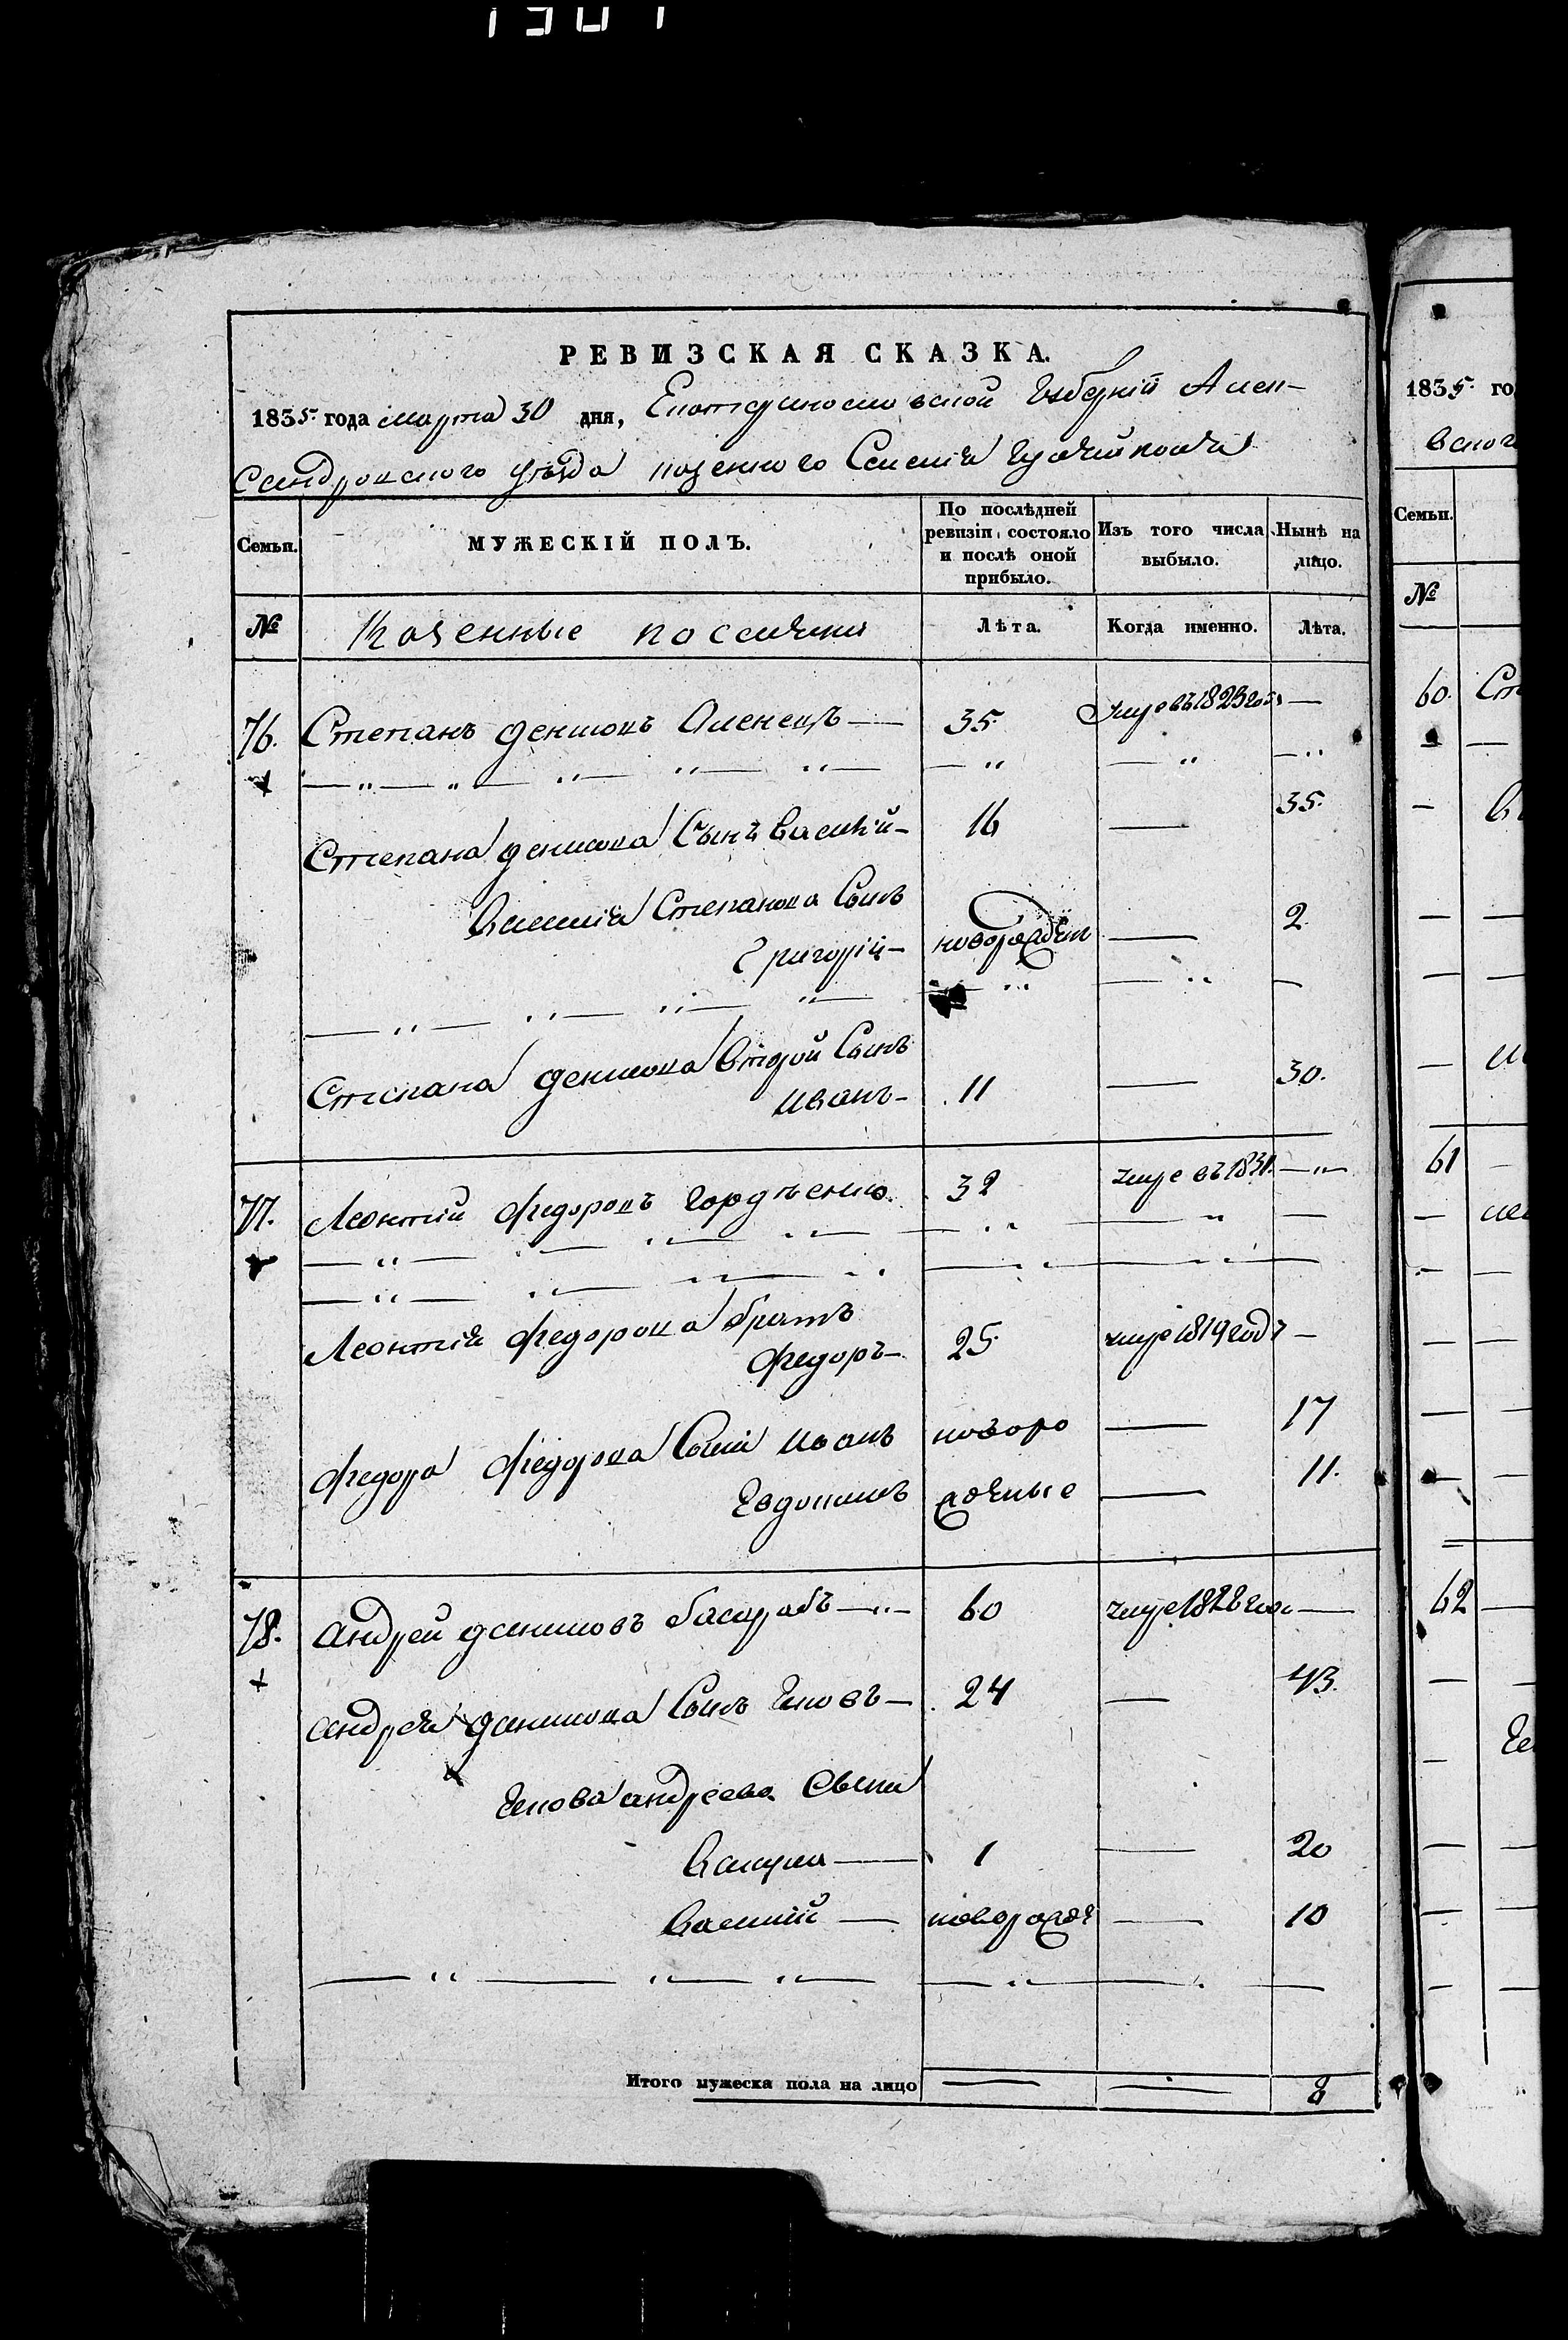 РЕВИЗСКАЯ СКАЗКА.
1835 года марта 30 дня, Екатеринославской Губерній Алек-
сандровского уѣзда казенного Селенія
Семьи. МУЖЕСКІЙ ПОЛЪ. По послѣдней ревизіи состояло и послѣ оной прибыло. Изъ того числа выбыло. Нынѣ на лицо.
№ Казенные поселяня Лѣта. Когда именно. Лѣта.
76. Степанъ денисовъ 35. умре въ 1823 годѣ —
Степана денисова Сынъ василій — 16 — 35.
василія Степанова Сынъ
Григорій — новорожден — 2
Степана денисова второй Сынъ
иванъ — 11 — 30.
77. Леонтій федоровъ Гордѣенко 32 умре въ 1831. —
Леонтія федорова братъ
федоръ — 25. умре 1819 годѣ —
федора федорова Сыни иванъ новоро — 17
Евдокимъ жденые — 11.
78. андрей даниловъ басарабъ — 60 умре 1828 годѣ —
андрея данилова Сынъ Яковъ — 24 — 43.
Якова андреева Сыни
1 — 20
василій — новорожде — 10
Итого мужеска пола на лицо 8
1835. го
Семьи.
№
60. Ст
61
62